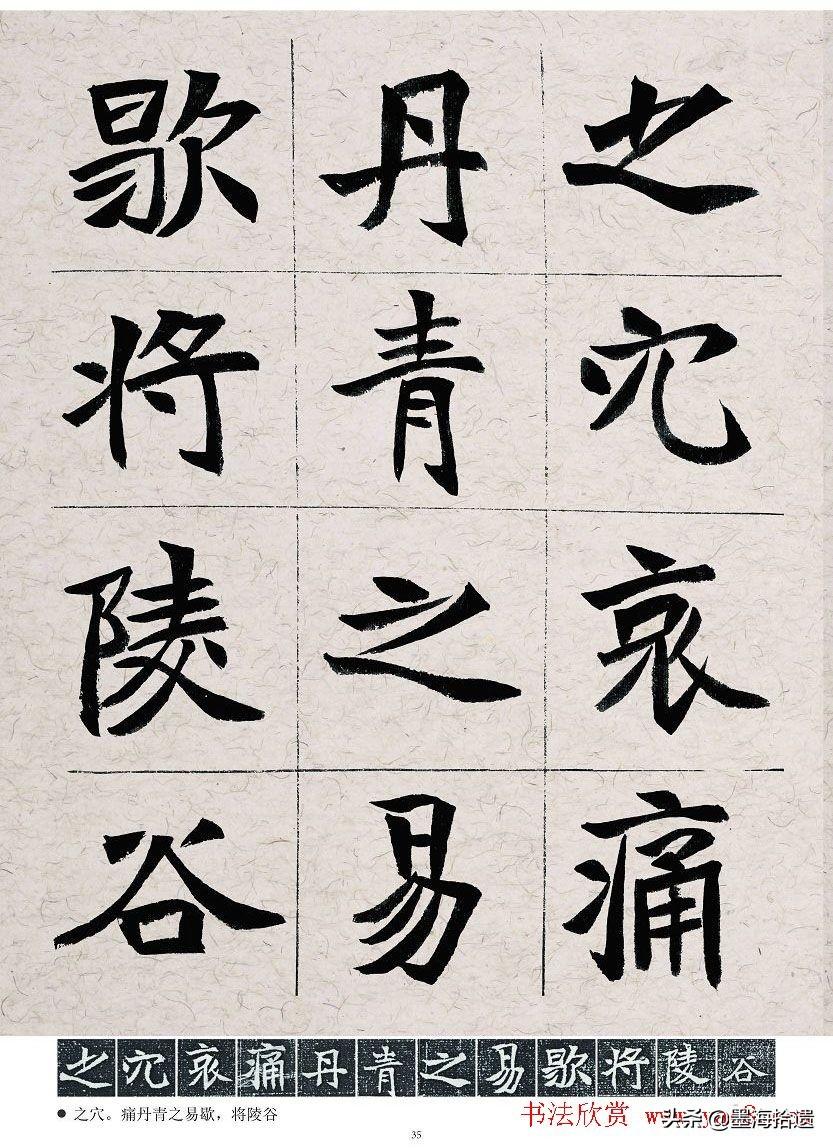 之穴哀痛
丹青之易
歇将陵谷
之穴哀痛丹青之易歇将陵谷
● 之穴。痛丹青之易歇，将陵谷
书法欣赏
头条@墨海拾遗
35